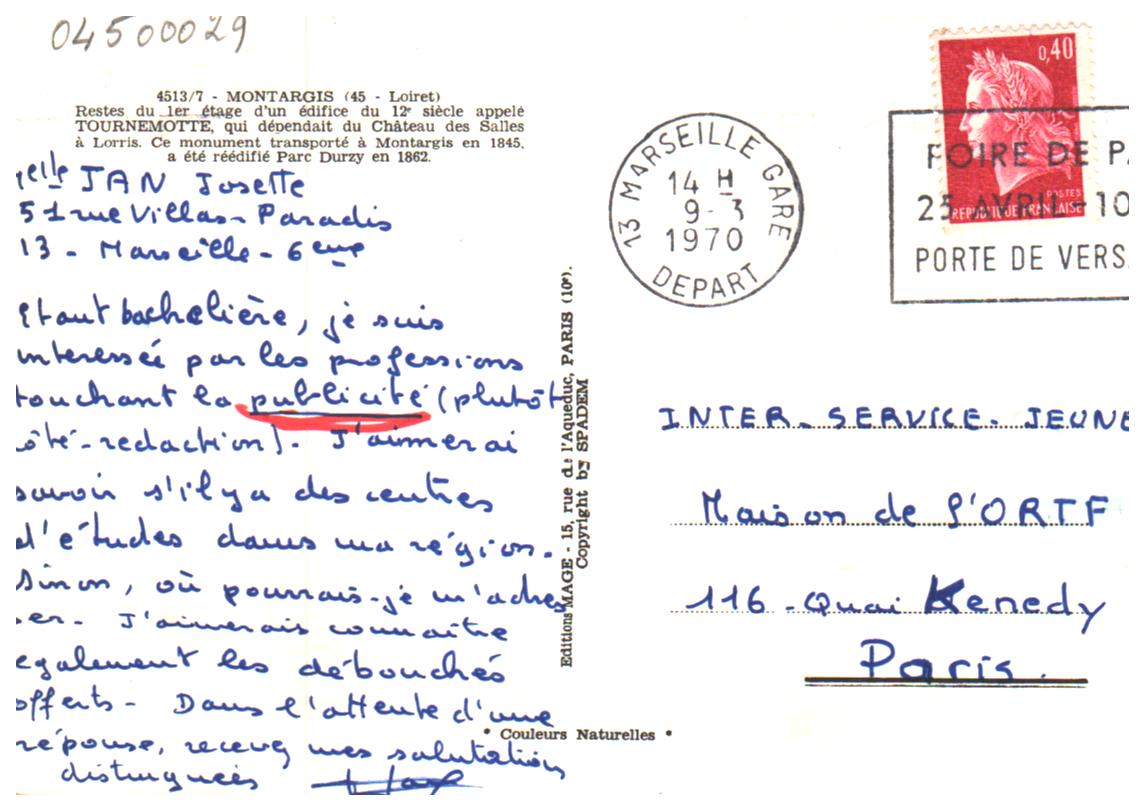 04500029
4513/7 - MONTARGIS (45 - Loiret)
Restes du 1er étage d'un édifice du 12e siècle appelé
TOURNEMOTTE, qui dépendait du Château des Salles
à Lorris. Ce monument transporté à Montargis en 1845,
a été réédifié Parc Durzy en 1862.
elle JAN Josette
51 rue Villas-Paradis
13 - Marseille - 6eme
Etant bachelière, je suis
interessée par les professions
touchant la publicité (plutôt
côté-redaction). J'aimerai
savoir s'il y a des centres
d'études dans ma région.
Sinon, où pourrais-je m'adres
ser. J'aimerais connaître
egalement les débouchés
offerts - Dans l'attente d'une
réponse, recevez mes salutations
distinguées
Editions MAGE - 15, rue de l'Aqueduc, PARIS (10e).
Copyright by SPADEM
* Couleurs Naturelles *
13 MARSEILLE GARE
14 H
9-3
1970
DEPART
0,40
POSTES
REPUBLIQUE FRANCAISE
FOIRE DE PA
25 AVRIL - 10
PORTE DE VERSA
INTER-SERVICE-JEUNE
Maison de l'ORTF
116 - Quai Kenedy
Paris.